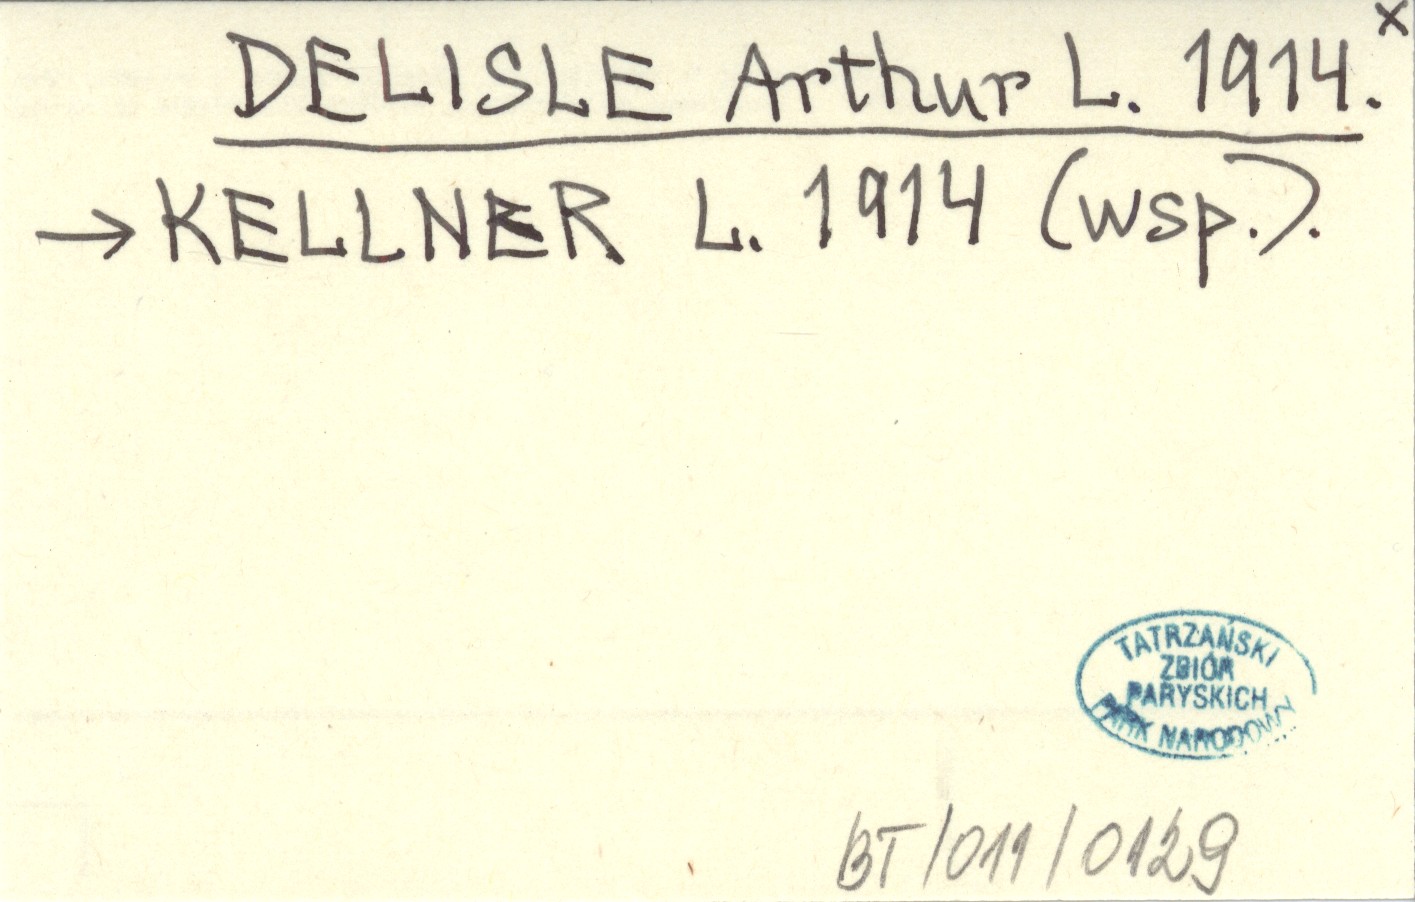 x
DELISLE Arthur L. 1914.
→ KELLNER L. 1914 (wsp.).
TATRZAŃSKI
ZBIÓR
PARYSKICH
PARK NARODOWY
BT/011/0129